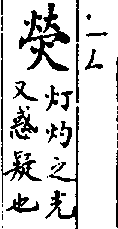 ˙ㄧㄥ
熒
灯灼之光
又惑疑也